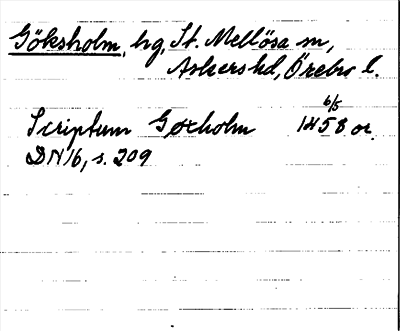 Göksholm, hg, St. Mellösa sn,
Askers hd, Örebro l.
6/5
Scriptum Goxholm 1458 or.
DN 16, s. 209